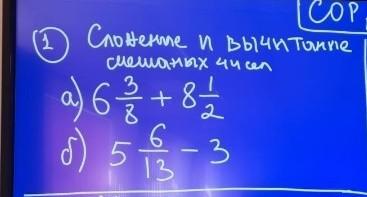 СОР
1 Сложение и вычитание
смешаных чисел
а) 6 3/8 + 8 1/2
б) 5 6/13 - 3